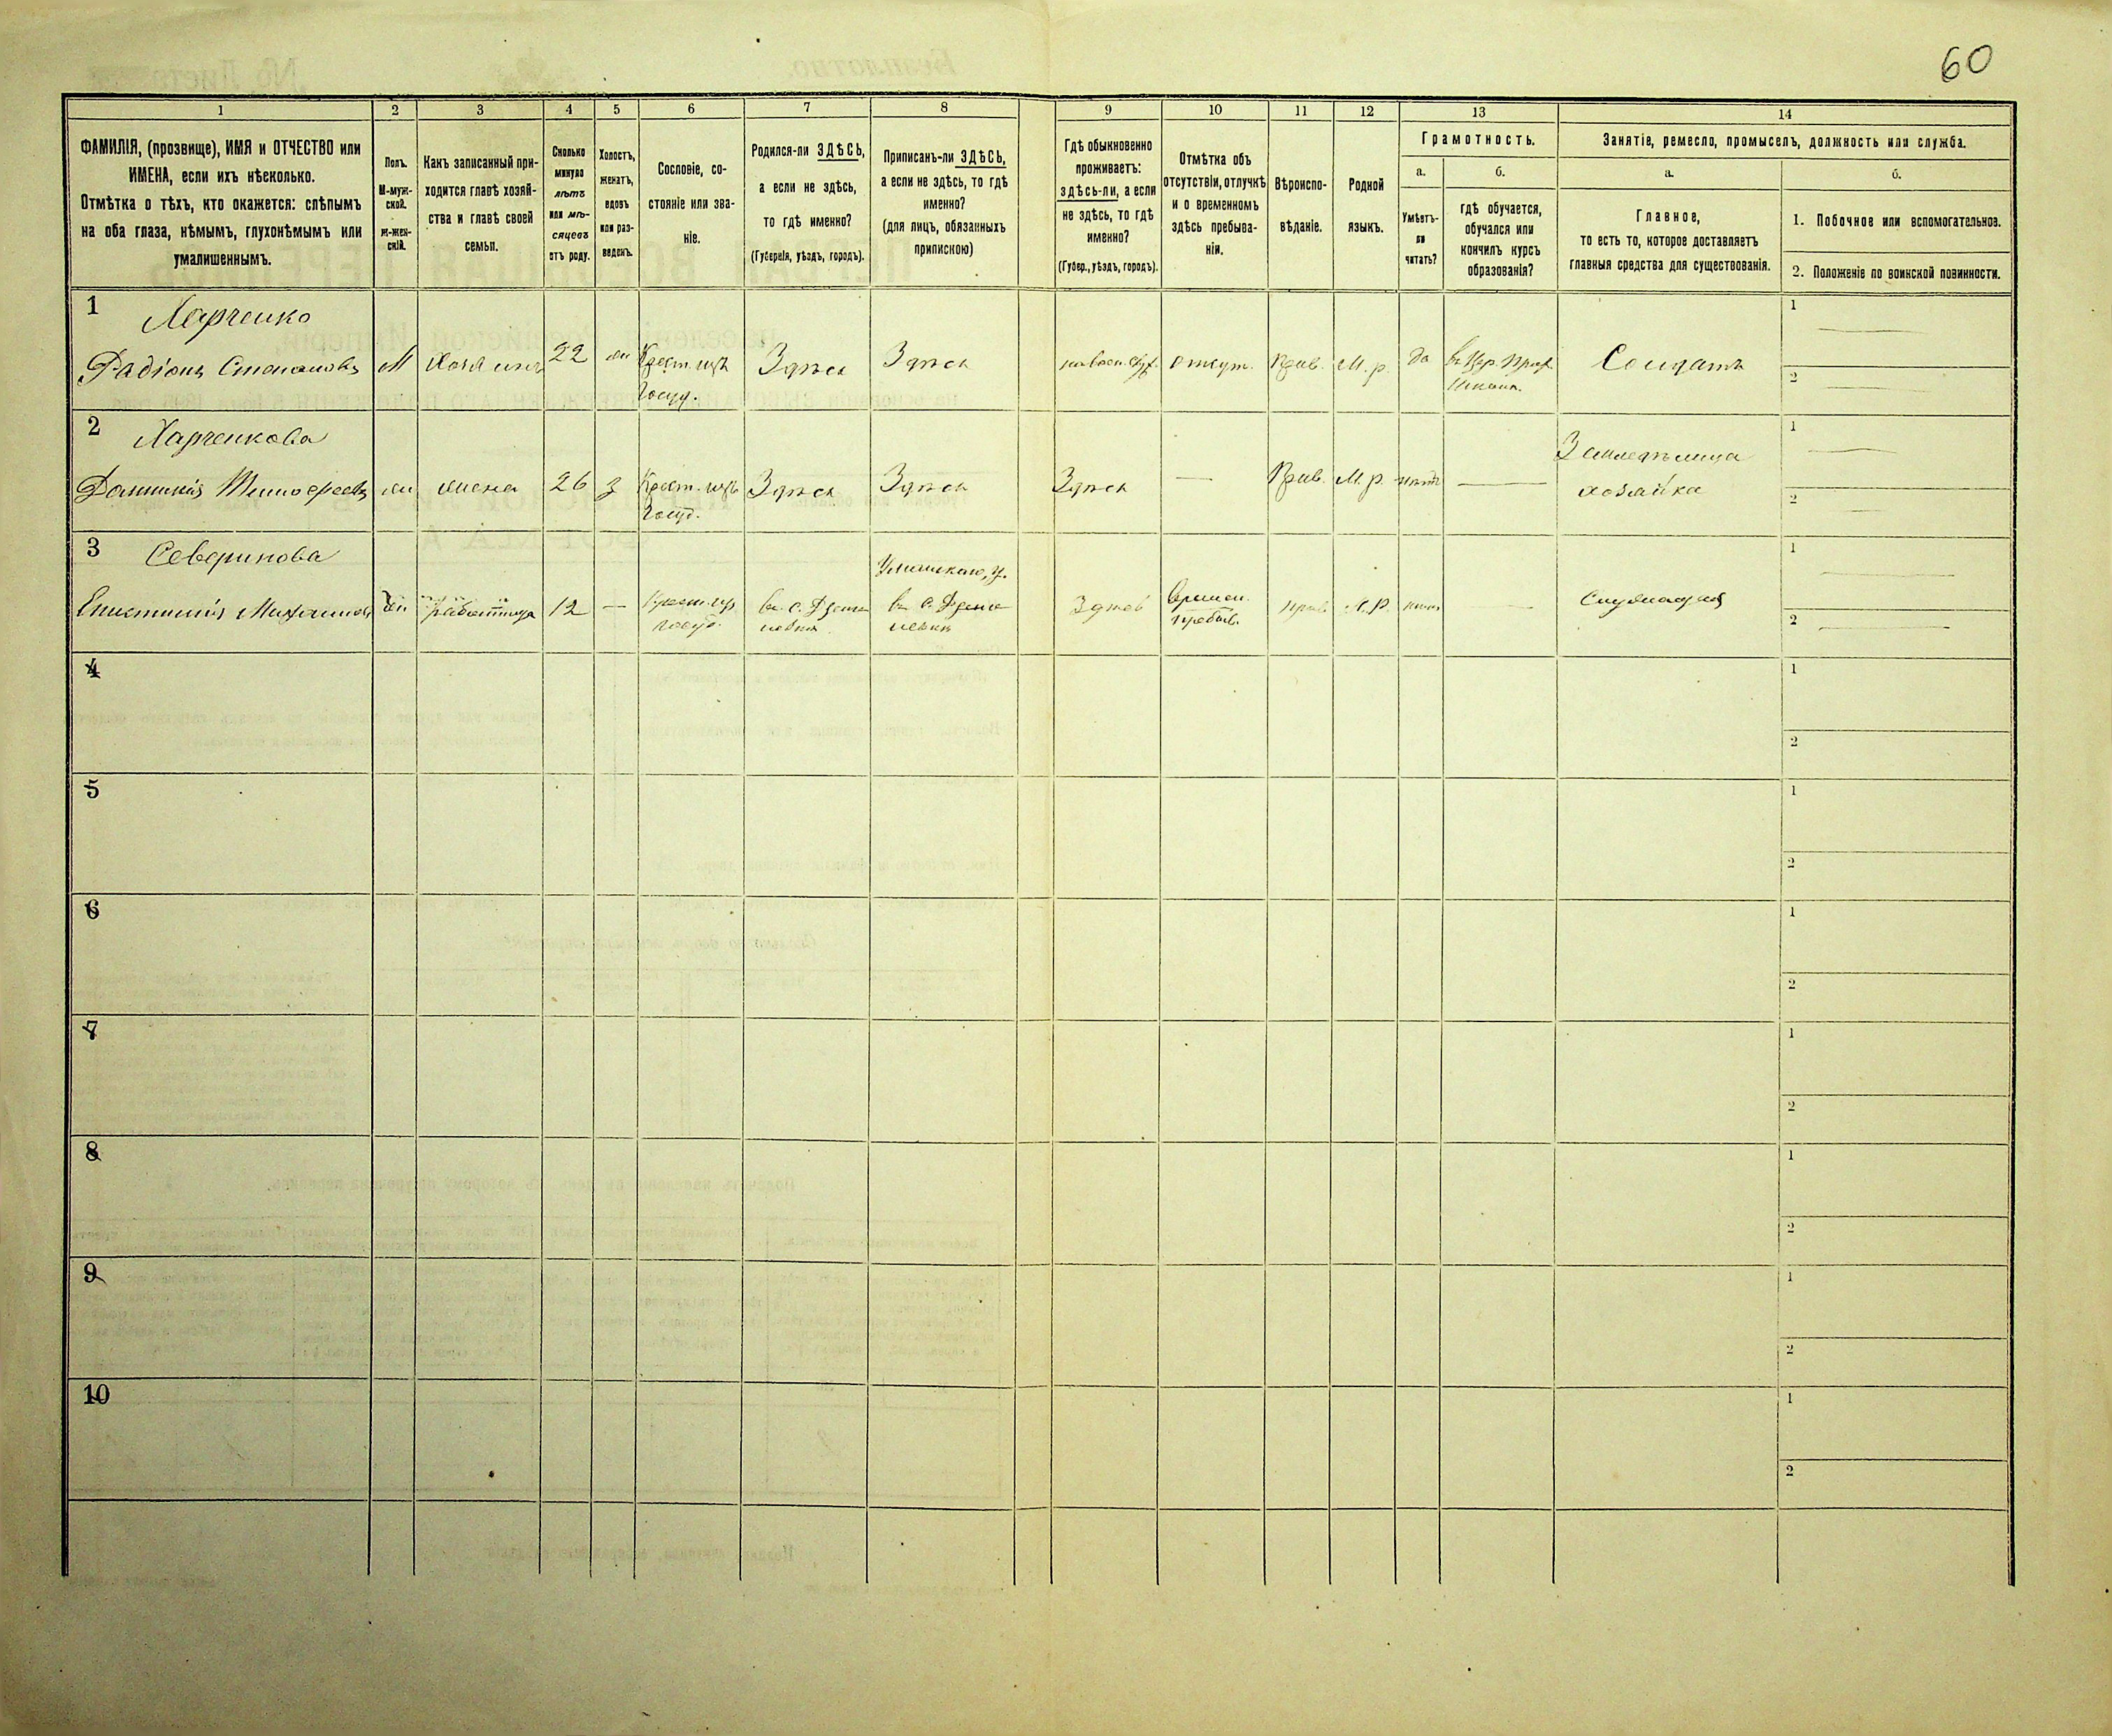 60
1 2 3 4 5 6 7 8 9 10 11 12 13 14
ФАМИЛІЯ, (прозвище), ИМЯ и ОТЧЕСТВО или
ИМЕНА, если ихъ нѣсколько.
Отмѣтка о тѣхъ, кто окажется: слѣпымъ
на оба глаза, нѣмымъ, глухонѣмымъ или
умалишеннымъ.
Полъ.
М-муж-
ской.
ж-жен-
скій.
Какъ записанный при-
ходится главѣ хозяй-
ства и главѣ своей
семьи.
Сколько
минуло
лѣтъ
или мѣ-
сяцевъ
отъ роду.
Холостъ,
женатъ,
вдовъ
или раз-
веденъ.
Сословіе, со-
стояніе или зва-
ніе.
Родился-ли ЗДѢСЬ,
а если не здѣсь,
то гдѣ именно?
(Губернія, уѣздъ, городъ).
Приписанъ-ли ЗДѢСЬ,
а если не здѣсь, то гдѣ
именно?
(для лицъ, обязанныхъ
припискою)
Гдѣ обыкновенно
проживаетъ:
здѣсь-ли, а если
не здѣсь, то гдѣ
именно?
(Губер., уѣздъ, городъ).
Отмѣтка объ
отсутствіи, отлучкѣ
и о временномъ
здѣсь пребыва-
ніи.
Вѣроиспо-
вѣданіе.
Родной
языкъ.
Грамотность.
а.
Умѣетъ-
ли
читать?
б.
гдѣ обучается,
обучался или
кончилъ курсъ
образованія?
Занятіе, ремесло, промыселъ, должность или служба.
а.
Главное,
то есть то, которое доставляетъ
главныя средства для существованія.
б.
1. Побочное или вспомогательное.
2. Положеніе по воинской повинности.
1
Харченко
Радіонъ Степановъ
М
хозяинъ
22
жн
Крест. изъ
Госуд.
Здѣсь
Здѣсь
на воен. служ.
отсут.
Прав.
М. р.
да
въ Цер. Прих.
Школ.
Солдатъ
1
2
2
Харченкова
жн
жена
26
з
Крест. изъ
Госуд.
Здѣсь
Здѣсь
Здѣсь
—
Прав.
М. р.
нѣтъ
—
хозяйка
1
2
3
Северинова
жн
работница
12
—
Крест. изъ
госуд.
Уманскаго, у.
Здѣсь
Времен.
пребыв.
прав.
М. р.
нѣтъ
—
1
2
4
1
2
5
1
2
6
1
2
7
1
2
8
1
2
9
1
2
10
1
2